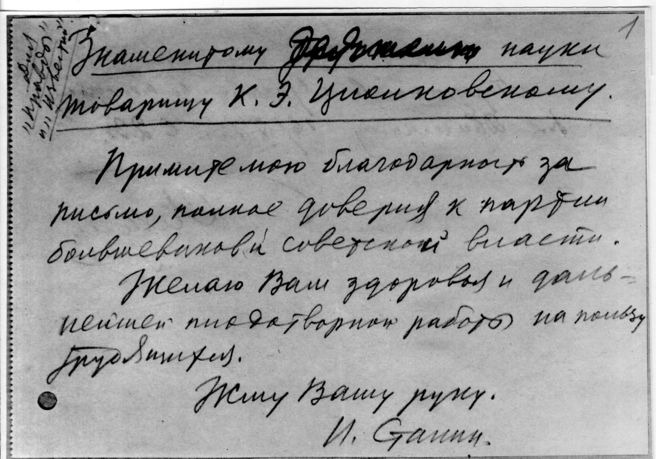 Для
"Правды"
и "Известий"
1
Знаменитому деятелю науки
товарищу К. Э. Циолковскому.
Примите мою благодарность за
письмо, полное доверия к партии
большевиков и советской власти.
Желаю Вам здоровья и даль-
нейшей плодотворной работы на пользу
трудящихся.
Жму Вашу руку.
И. Сталин.